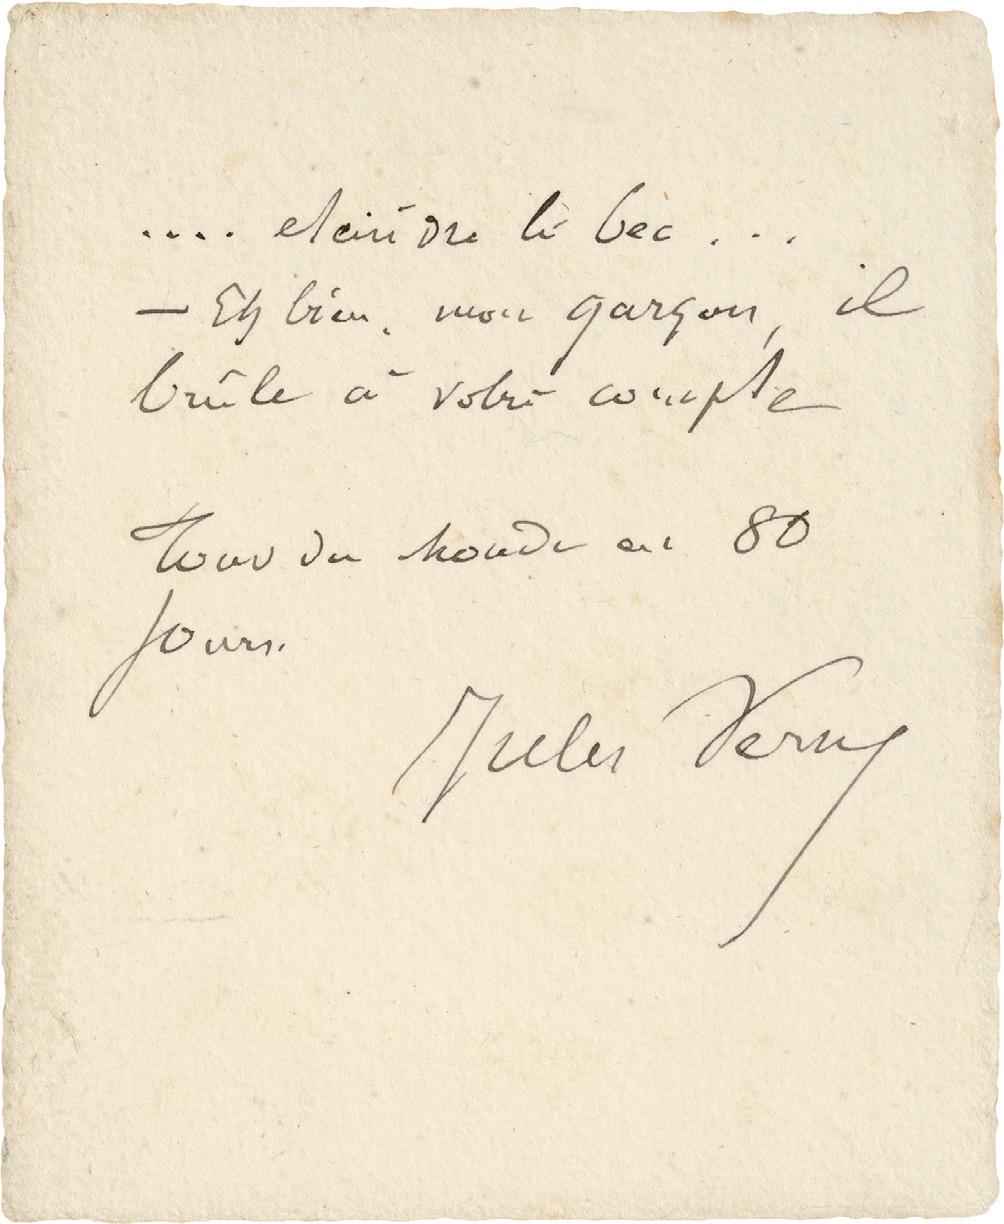 .... eteindre le bec ...
– Eh bien, mon garçon, il
brûle à votre compte
Tour du Monde en 80
Jours.
Jules Verne